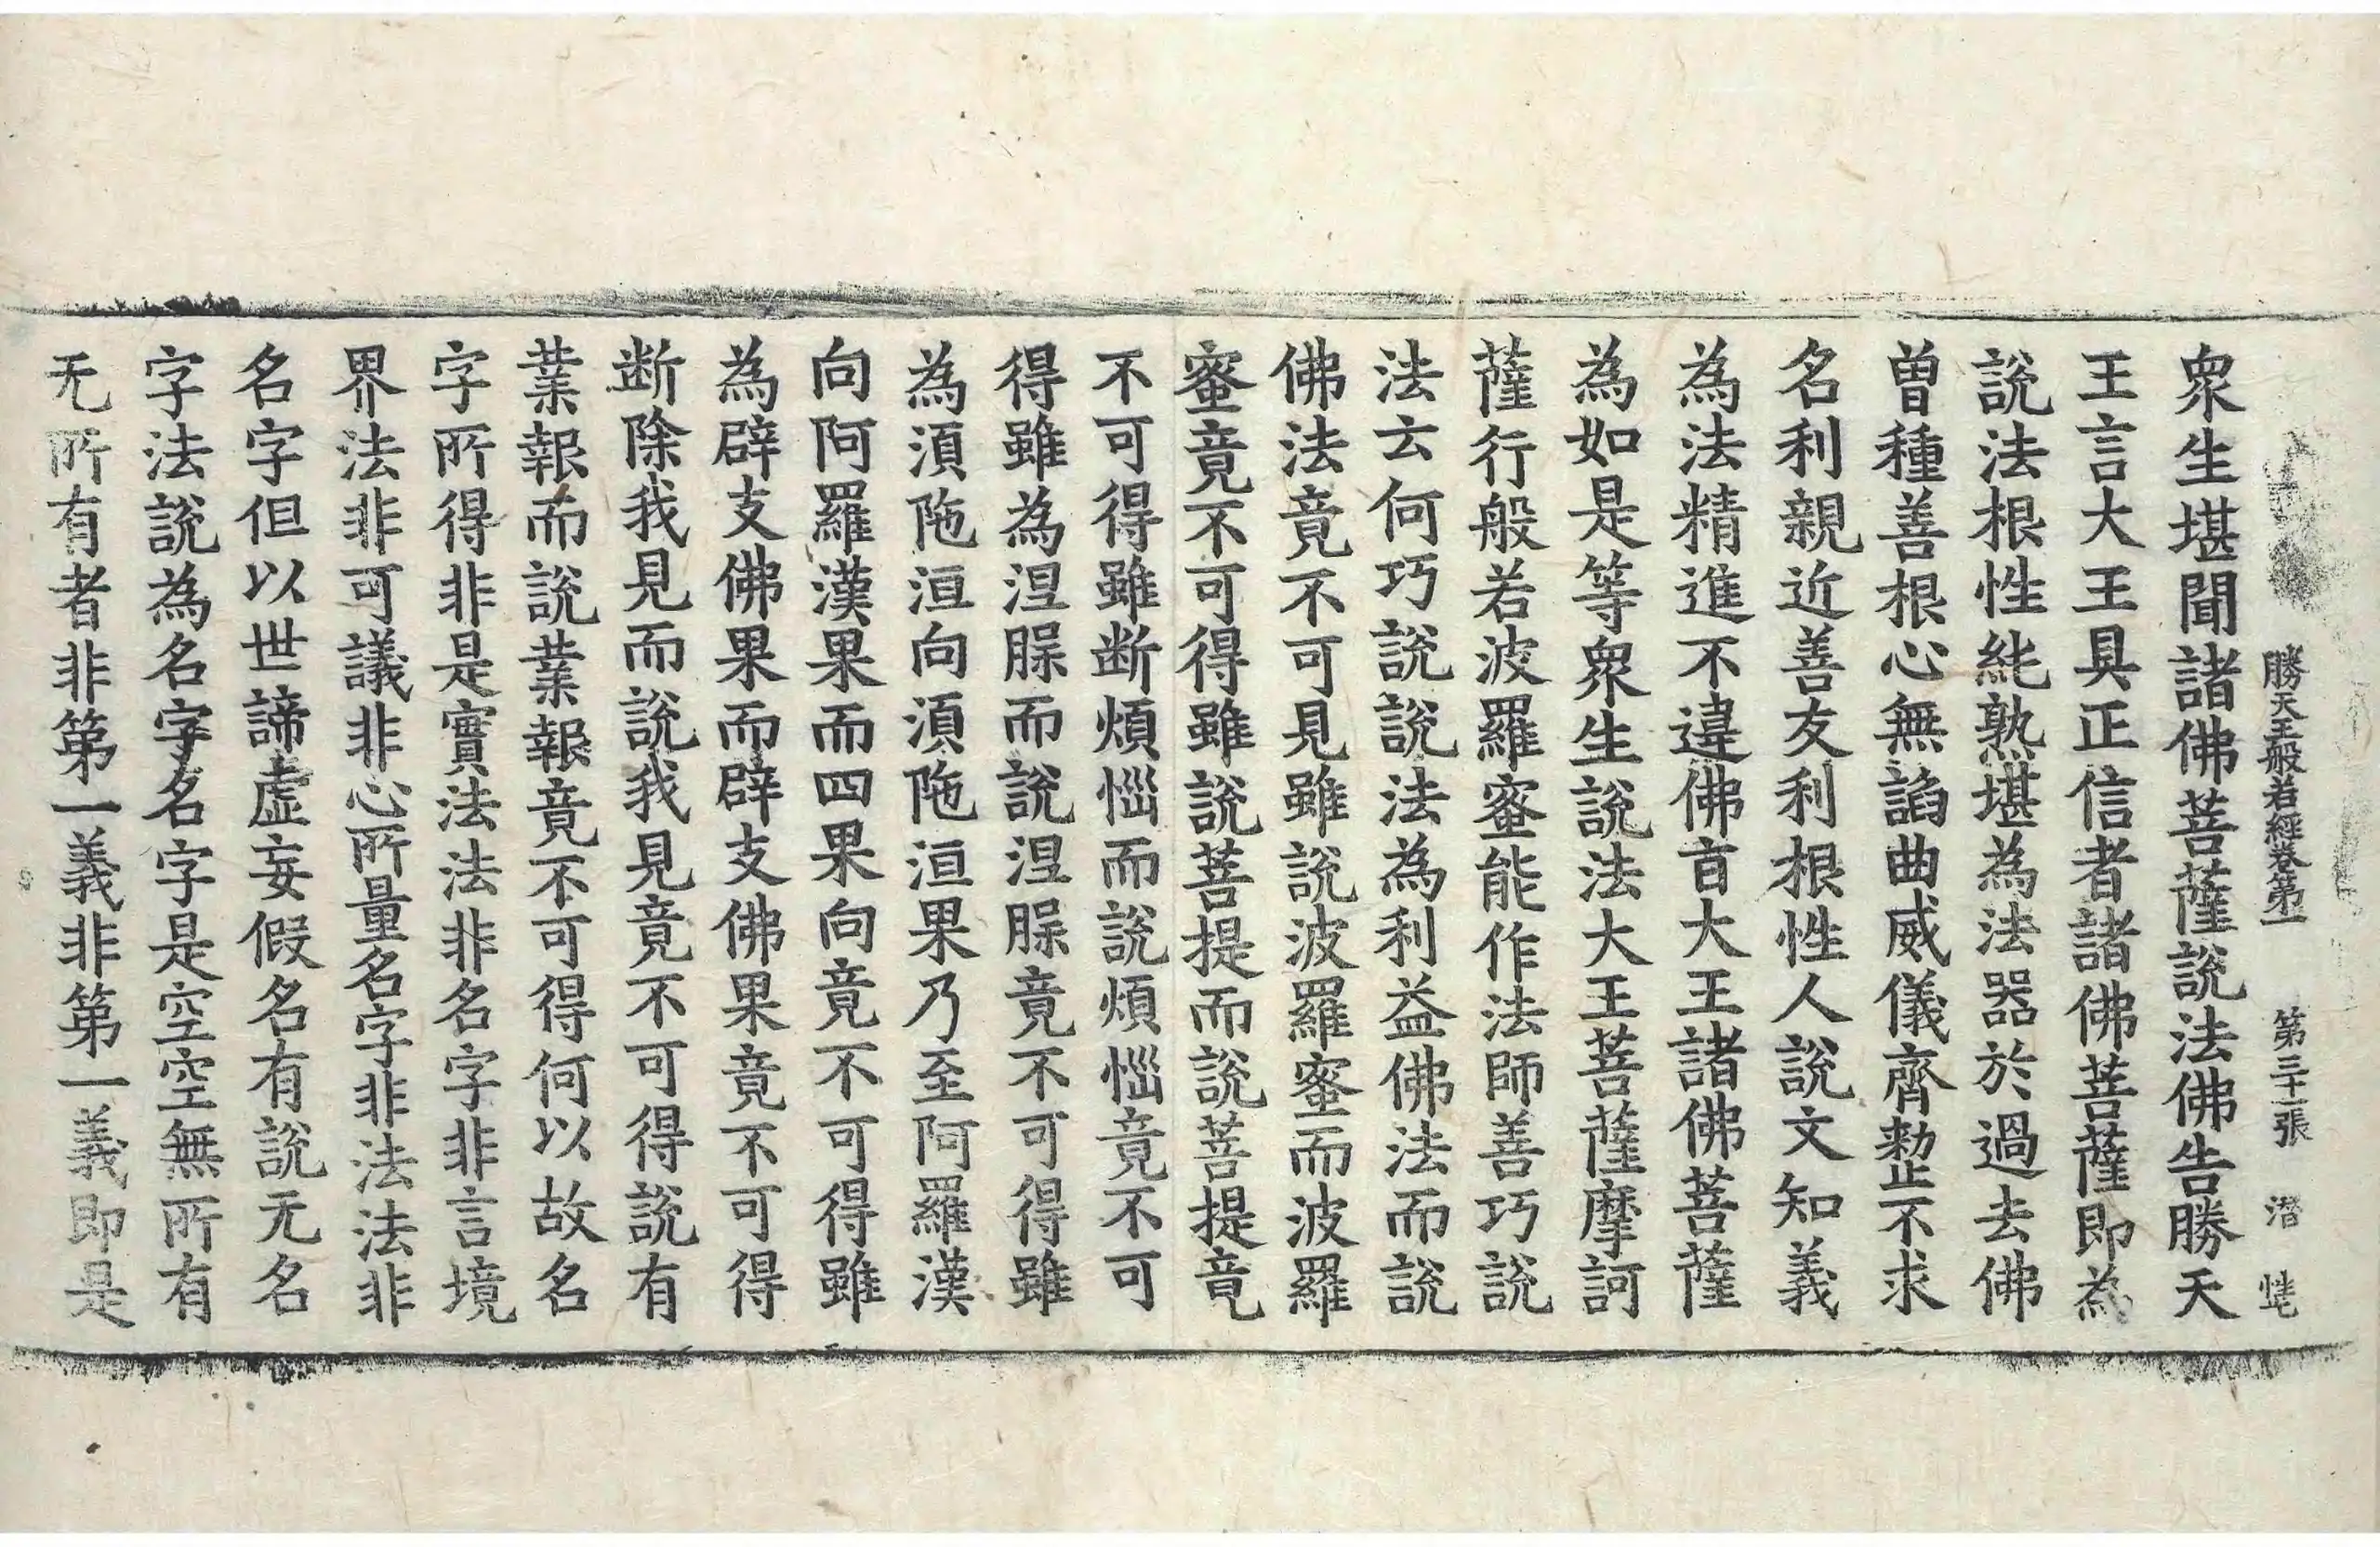 勝天王般若經卷第一　第三十一張　潜　𢤱
衆生堪聞諸佛菩薩説法佛告勝天
王言大王具正信者諸佛菩薩即為
説法根性純熟堪為法器於過去佛
曽種善根心無諂曲威儀齊整不求
名利親近善友利根性人説文知義
為法精進不違佛㫖大王諸佛菩薩
為如是等衆生説法大王菩薩摩訶
薩行般若波羅蜜能作法師善巧説
法云何巧説説法為利益佛法而説
佛法竟不可見雖説波羅蜜而波羅
蜜竟不可得雖説菩提而説菩提竟
不可得雖断煩惱而説煩惱竟不可
得雖為涅槃而説涅槃竟不可得雖
為湏陁洹向湏陁洹果乃至阿羅漢
向阿羅漢果而四果向竟不可得雖
為辟支佛果而辟支佛果竟不可得
断除我見而説我見竟不可得説有
業報而説業報竟不可得何以故名
字所得非是實法法非名字非言境
界法非可議非心所量名字非法法非
名字但以世諦虚妄假名有説无名
字法説為名字名字是空空無所有
无所有者非第一義非第一義即是